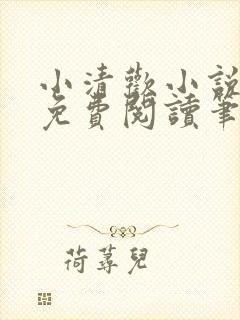 小清歡小說
免費閱讀筆
荷蕁兒